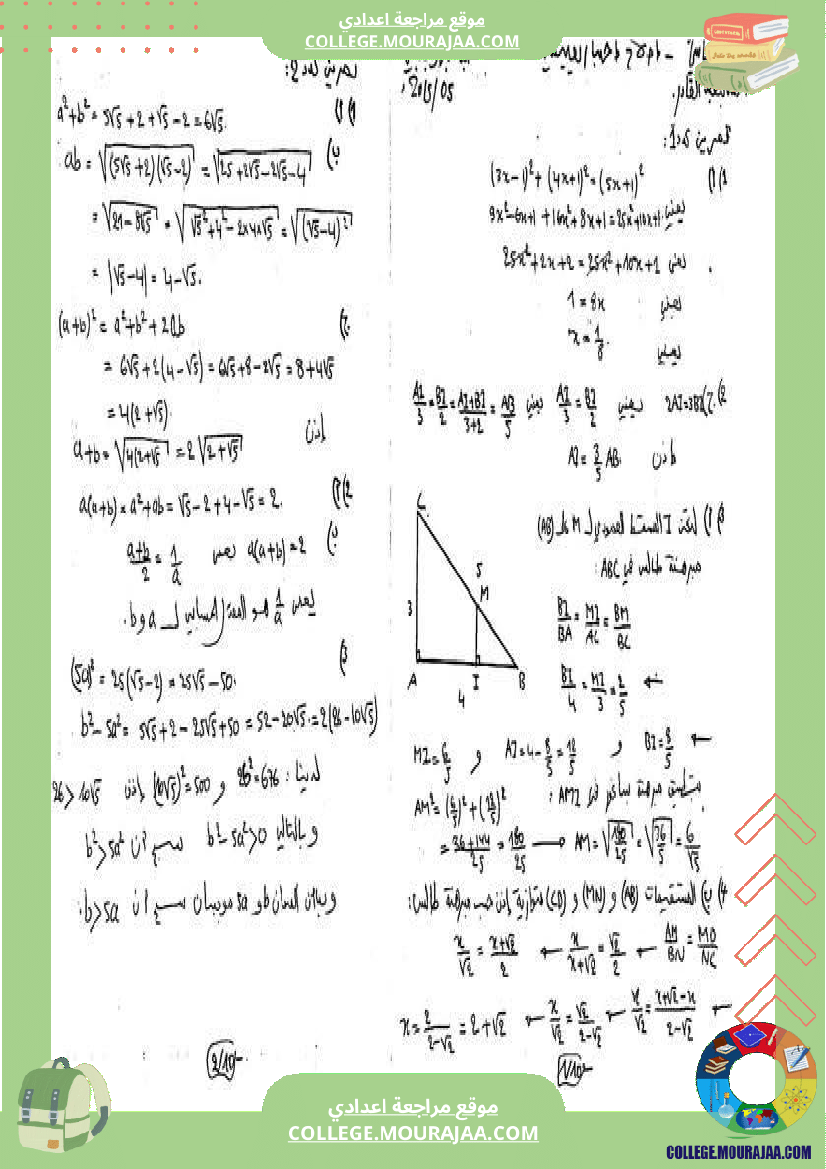 موقع مراجعة اعدادي
COLLEGE.MOURAJAA.COM
2015/05
تمرين عدد 1:
1) أ) (3x-1)² + (4x+1)² = (5x+1)²
يعني 9x²-6x+1 + 16x²+8x+1 = 25x²+10x+1
يعني 25x²+2x+2 = 25x²+10x+1
يعني 1 = 8x
يعني x = 1/8
2) 2AI=3BI يعني AI/3 = BI/2 يعني AI/3 = BI/2 = (AI+BI)/(3+2) = AB/5
إذن AI = 3/5 AB
3) أ) لتكن I المسقط العمودي لـ M على (AB)
مبرهنة طالس في ABC:
BI/BA = MI/AC = BM/BC
← BI/4 = MI/3 = 2/5
C
5
M
3
A
I
B
4
← BI = 8/5 و AI = 4 - 8/5 = 12/5 و MI = 6/5
بتطبيق مبرهنة بيتاغور في AMI:
AM² = (6/5)² + (12/5)²
= (36+144)/25 = 180/25 → AM = √(180/25) = √(36/5) = 6/√5
ب) المستقيمات (AB) و (MN) و (CD) متوازية إذن حسب مبرهنة طالس:
AM/BN = MD/NC ← x/(x+√2) = √2/2 ← x/√2 = (x+√2)/2
← x/√2 = (x+√2-x)/(2-√2) ← x/√2 = √2/(2-√2) ← x = 2/(2-√2) = 2+√2
1/10
تمرين عدد 2:
1) أ) a²+b² = 5√5+2+√5-2 = 6√5.
ب) ab = √((5√5+2)(√5-2)) = √(25+2√5-2√5-4)
= √(21-8√5) = √(√5²+4²-2x4x√5) = √((√5-4)²)
= |√5-4| = 4-√5.
ج) (a+b)² = a²+b²+2ab
= 6√5+2(4-√5) = 6√5+8-2√5 = 8+4√5
= 4(2+√5)
إذن a+b = √(4(2+√5)) = 2√(2+√5)
2) أ) a(a+b) = a²+ab = √5-2+4-√5 = 2.
ب) a(a+b)=2 يعني (a+b)/2 = 1/a
يعني 1/a هو المعدل الحسابي لـ a و b.
3) (5a)² = 25(√5-2) = 25√5-50.
b²-5a² = 5√5+2-25√5+50 = 52-20√5 = 2(26-10√5)
لدينا: 26²=676 و (10√5)²=500 إذن 26 > 10√5
و بالتالي b²-5a²>0 b²>5a²
b>5a.
2/10
موقع مراجعة اعدادي
COLLEGE.MOURAJAA.COM
COLLEGE.MOURAJAA.COM